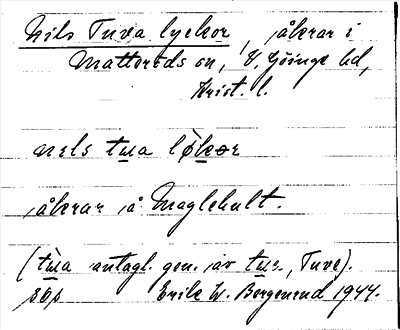 Nils Tuva lyckor, åkrar i
Matteröds sn, V. Göinge hd,
Krist. l.
nels tua løkər
åkrar å Maglehult.
(tua antagl. gen. av tue, Tuve).
sös Erik W. Bergenrud 1944.